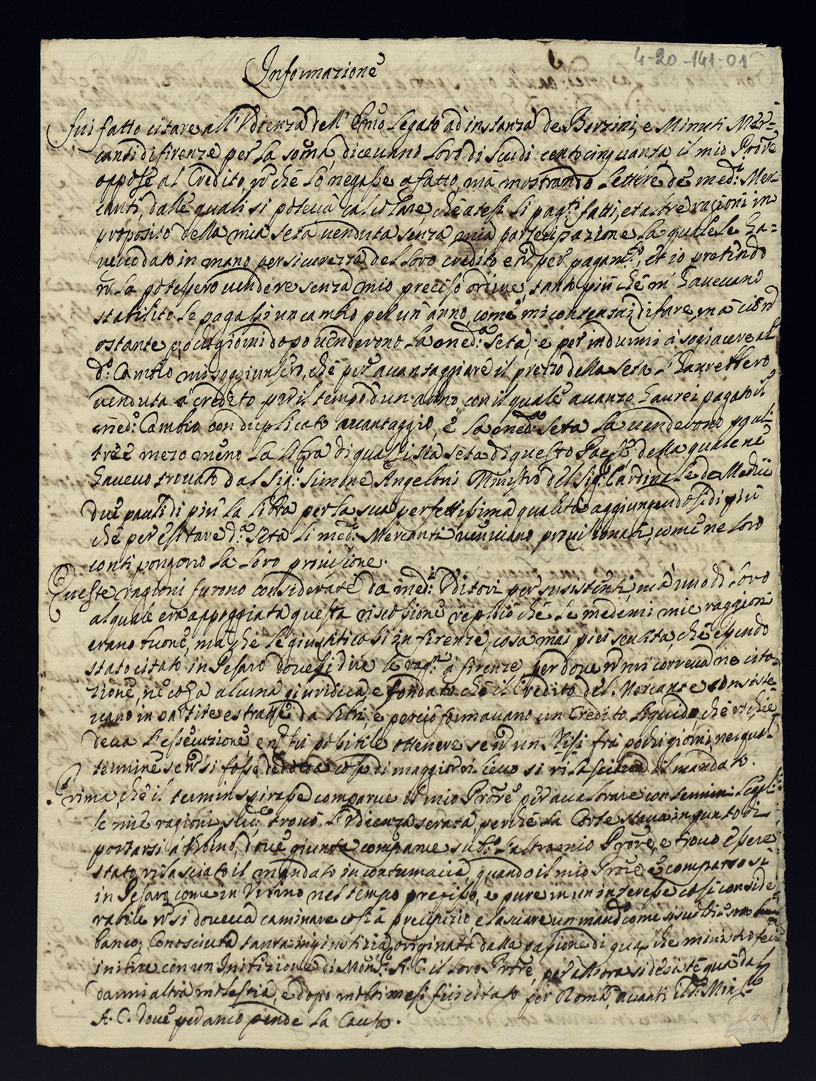 4-20-141-01
Informazione
Fui fatto citare all'Udienza dell' Emo Legato ad instanza de Borzini, e Minuti Mer-
canti di firenze per la soma dicevano loro di Scudi cento cinquanta il mio Prore
oppose al Credito no che lo negasse afatto, mà mostrando lettere de med: Mer-
canti, dalle quali si poteva calcolare, che atesi li pagti fatti, et altre ragioni in
proposito della mia seta venduta senza mia partecipazione la quale le ha-
vevo dato in mano per sicurezza del loro credito e no per pagamto, et io pretendo
no la potessero vendere senza mio preciso ordine, tanto più che m' havevano
stabilito le pagassi un cambio per un' anno, come mi contentai di fare, ma ciò no
ostante pochi giorni dopo venderono la med: seta; e per indurmi à sogiacere al
do Cambio mi soggiunsero, che per avantaggiare il prezzo della seta l' haurebbero
venduta à credito per il tempo d'un anno con il quale avanzo haurei pagato il
med: Cambio con duplicato avantaggio, e la med: seta la venderono pauli
tre e mezo meno la libra di qualsisia seta di questo Paese della quale ne
havevo trovato dal Sig: Simone Angeloni Ministro del Sig: Cardinale de Medici
due pauli di più la libra per la sua perfettissima qualità aggiungendosi di più
che per esitare da seta li med: Mercanti venivano provisionati, come ne loro
conti pongono la loro provisione.
Queste ragioni furono considerate da med: Uditori per sussistenti, mà uno di loro
al quale era appoggiata questa riscossione replicò che le medeme mie raggioni
erano buone, ma che le giustificassi in firenze, cosa mai più sentita, che essendo
stato citato in Pesaro dovessi dire le ragni à firenze per dove no mi correva ne cita-
zione, ne cosa alcuna giuridica, e fondato che il Credito del Mercante consiste-
vano in partite estratte da libri e perciò formavano un Credito liquido, che richie-
deva l'essecuzione, e no fù posibile ottenere se no un Nisi frà pochi giorni, nel qual
termine se no si fosse dedotta cosa di maggior rilievo si rilasciava il mandato.
Prima che il termin spirasse comparve il mio Prore per avalorare con termini legali
le mie ragioni trovò l'Udienza serata, perche la Corte stava in punto di
portarsi à Urbino, dove giunta comparve subo l'altro mio Prore, e trovò essere
stato rilasciato il mandato in contumacia, quando il mio Prore è comparso si
in Pesaro, come in Urbino nel tempo prefisso, e pure in un interesse così conside-
rabile no si doveva caminare così à precipizio e lasciare un mando come si suol dire
banco, Conosciuta tanta ingiustizia originata dalla passione di qualche ministro feci
inibire con un Inibizione di Monsr A. C. il loro Prore per allora si desistè qua dal
darmi altra molestia, e dopo molti mesi fui citato per Roma, avanti il do Monsr
A. C. dove pedanco pende la Causa.